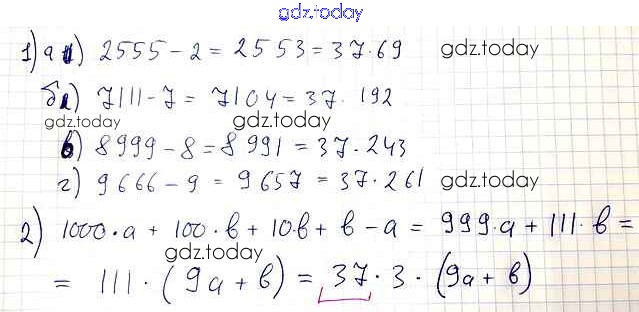 gdz.today
1) а) 2555 - 2 = 2553 = 37·69 gdz.today
б) 7111 - 7 = 7104 = 37·192
gdz.today gdz.today
в) 8999 - 8 = 8991 = 37·243
г) 9666 - 9 = 9657 = 37·261 gdz.today
2) 1000·a + 100·b + 10b + b - a = 999·a + 111·b =
gdz.today
= 111·(9a + b) = 37·3·(9a + b)